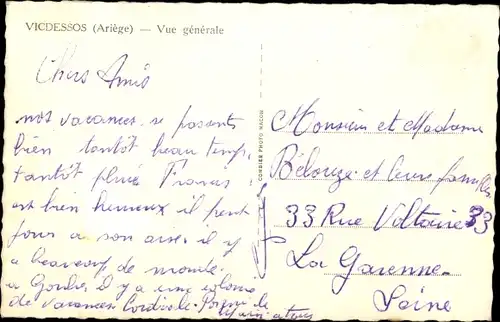 VICDESSOS (Ariège) — Vue générale
Chers Amis
nos vacances se passents
bien tantôt beau temp.
tantôt pluie Francis
est bien heureux il peut
a son aise il y
a beaucoup de monde
a il y a une colonie
de vacances Cordiale
a tous
COMBIER PHOTO MACON
Monsieur et Madame
Bélouze et leurs familles
33 Rue Voltaire 33
La Garenne
Seine